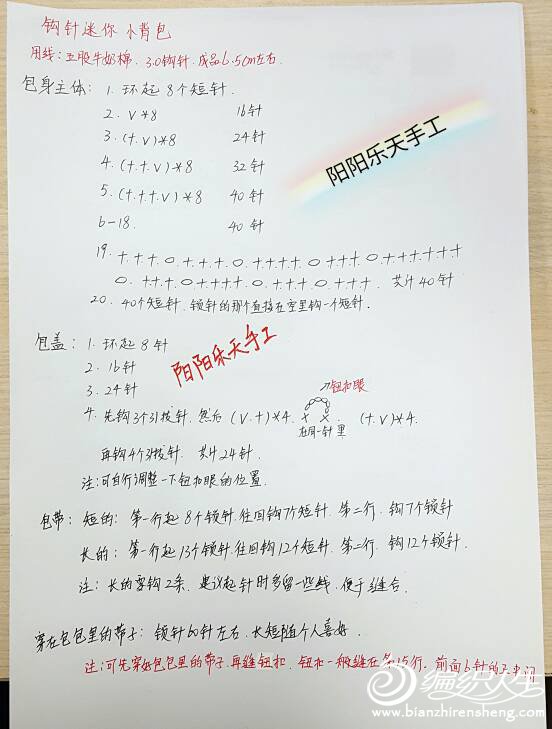 钩针迷你小背包
用线：五股牛奶棉．3.0钩针．成品6.5cm左右．
包身主体：1. 环起8个短针．
2. V*8 16针
3. (+.V)*8 24针
4. (+.+.V)*8 32针
5. (+.+.+.V)*8 40针
6-18. 40针
阳阳乐天手工
20. 40个短针．锁针的那个直接在空里钩一个短针．
包盖：1. 环起8针
2. 16针
3. 24针
阳阳乐天手工
→钮扣眼
4. 先钩3个引拔针．然后 (V.+)*4． × × (+.V)*4．
在同一针里
再钩4个引拔针．共计24针．
注：可自行调整一下钮扣眼的位置．
包带：短的：第一行起8个锁针．往回钩7个短针．第二行．钩7个锁针
长的：第一行起13个锁针．往回钩12个短针．第二行．钩12个锁针．
注：长的要钩2条．建议起针时多留一些线．便于缝合．
穿在包包里的带子：锁针60针左右．长短随个人喜好．
注：可先穿好包包里的带子．再缝钮扣．钮扣一般缝在第15行．前面6针的正中间
编织人生
www.bianzhirensheng.com